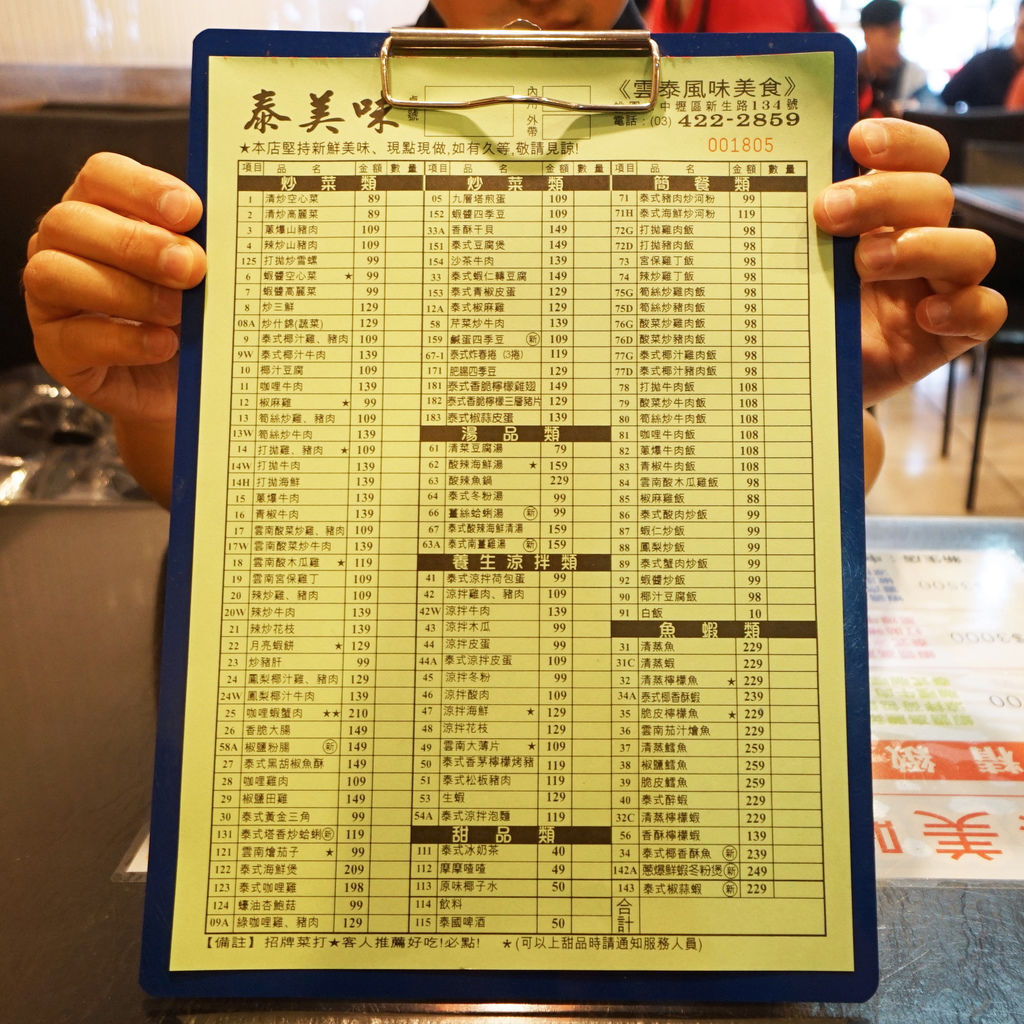 泰美味
桌號
內用 外帶
《雲泰風味美食》
中壢區新生路134號
電話：(03) 422-2859
001805
★本店堅持新鮮美味、現點現做,如有久等,敬請見諒!
項目 品名 金額 數量
炒菜類
1 清炒空心菜 89
2 清炒高麗菜 89
3 蔥爆山豬肉 109
4 辣炒山豬肉 109
125 打拋炒雪螺 99
6 蝦醬空心菜 ★ 99
7 蝦醬高麗菜 99
8 炒三鮮 129
08A 炒什錦(蔬菜) 129
9 泰式椰汁雞、豬肉 109
9W 泰式椰汁牛肉 139
10 椰汁豆腐 109
11 咖哩牛肉 139
12 椒麻雞 ★ 99
13 筍絲炒雞、豬肉 109
13W 筍絲炒牛肉 139
14 打拋雞、豬肉 ★ 109
14W 打拋牛肉 139
14H 打拋海鮮 139
15 蔥爆牛肉 139
16 青椒牛肉 139
17 雲南酸菜炒雞、豬肉 109
17W 雲南酸菜炒牛肉 139
18 雲南酸木瓜雞 ★ 119
19 雲南宮保雞丁 109
20 辣炒雞、豬肉 109
20W 辣炒牛肉 139
21 辣炒花枝 139
22 月亮蝦餅 ★ 129
23 炒豬肝 99
24 鳳梨椰汁雞、豬肉 129
24W 鳳梨椰汁牛肉 139
25 咖哩蝦蟹肉 ★★ 210
26 香脆大腸 149
58A 椒鹽粉腸 新 149
27 泰式黑胡椒魚酥 149
28 咖哩雞肉 109
29 椒鹽田雞 149
30 泰式黃金三角 99
131 泰式塔香炒蛤蜊 新 119
121 雲南燴茄子 ★ 99
122 泰式海鮮煲 209
123 泰式咖哩雞 198
124 蠔油杏鮑菇 99
09A 綠咖哩雞、豬肉 129
項目 品名 金額 數量
炒菜類
05 九層塔煎蛋 109
152 蝦醬四季豆 109
33A 香酥干貝 149
151 泰式豆腐煲 149
154 沙茶牛肉 139
33 泰式蝦仁轉豆腐 149
153 泰式青椒皮蛋 129
12A 泰式椒麻雞 129
58 芹菜炒牛肉 139
159 鹹蛋四季豆 新 109
67-1 泰式炸春捲 (3捲) 119
171 肥腸四季豆 129
181 泰式香脆檸檬雞翅 149
182 泰式香脆檸檬三層豬片 129
183 泰式椒蒜皮蛋 139
湯品類
61 清菜豆腐湯 79
62 酸辣海鮮湯 ★ 159
63 酸辣魚鍋 229
64 泰式冬粉湯 99
66 薑絲蛤蜊湯 新 99
67 泰式酸辣海鮮清湯 159
63A 泰式南薑雞湯 新 159
養生涼拌類
41 泰式涼拌荷包蛋 99
42 涼拌雞肉、豬肉 109
42W 涼拌牛肉 139
43 涼拌木瓜 99
44 涼拌皮蛋 99
44A 泰式涼拌皮蛋 109
45 涼拌冬粉 99
46 涼拌酸肉 109
47 涼拌海鮮 ★ 129
48 涼拌花枝 129
49 雲南大薄片 ★ 109
50 泰式香茅檸檬烤豬 119
51 泰式松板豬肉 119
53 生蝦 129
54A 泰式涼拌泡麵 119
甜品類
111 泰式冰奶茶 40
112 摩摩喳喳 49
113 原味椰子水 50
114 飲料
115 泰國啤酒 50
項目 品名 金額 數量
簡餐類
71 泰式豬肉炒河粉 99
71H 泰式海鮮炒河粉 119
72G 打拋雞肉飯 98
72D 打拋豬肉飯 98
73 宮保雞丁飯 98
74 辣炒雞丁飯 98
75G 筍絲炒雞肉飯 98
75D 筍絲炒豬肉飯 98
76G 酸菜炒雞肉飯 98
76D 酸菜炒豬肉飯 98
77G 泰式椰汁雞肉飯 98
77D 泰式椰汁豬肉飯 98
78 打拋牛肉飯 108
79 酸菜炒牛肉飯 108
80 筍絲炒牛肉飯 108
81 咖哩牛肉飯 108
82 蔥爆牛肉飯 108
83 青椒牛肉飯 108
84 雲南酸木瓜雞飯 98
85 椒麻雞飯 88
86 泰式酸肉炒飯 99
87 蝦仁炒飯 99
88 鳳梨炒飯 99
89 泰式蟹肉炒飯 99
92 蝦醬炒飯 99
90 椰汁豆腐飯 98
91 白飯 10
魚蝦類
31 清蒸魚 229
31C 清蒸蝦 229
32 清蒸檸檬魚 ★ 229
34A 泰式椰香酥蝦 239
35 脆皮檸檬魚 ★ 229
36 雲南茄汁燴魚 229
37 清蒸鱈魚 259
38 椒鹽鱈魚 259
39 脆皮鱈魚 259
40 泰式醉蝦 229
32C 清蒸檸檬蝦 229
56 香酥檸檬蝦 139
34 泰式椰香酥魚 新 239
142A 蔥爆鮮蝦冬粉煲 新 249
143 泰式椒蒜蝦 新 229
合計
【備註】招牌菜打★客人推薦好吃!必點! ★(可以上甜品時請通知服務人員)